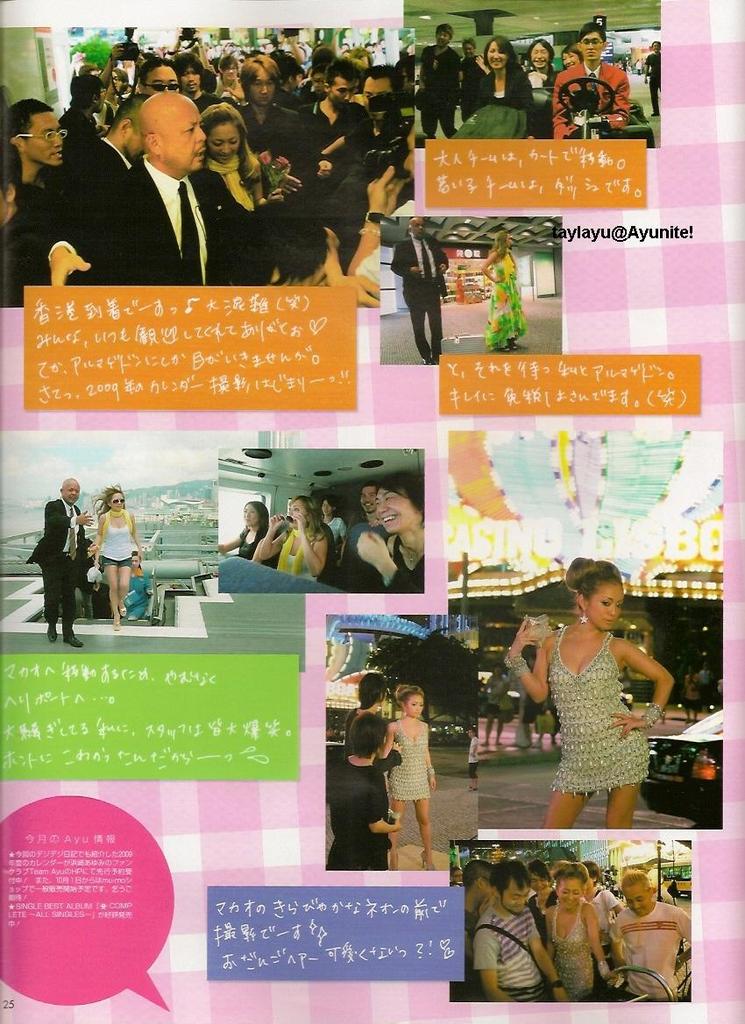 大人チームは、カートで移動。
若い子チームは、ダッシュです。
taylayu@Ayunite!
香港到着でーすっ♪大混雑(笑)
みんな、いつも歓迎してくれてありがとお♡
てか、アルマゲドンにしか目がいきませんが。
さてっ、2009年のカレンダー撮影、はじまりーっ!!
と、それを待つ私とアルマゲドン。
キレイに免税しおさんでます。(笑)
CASINO LISBO
マカオへ移動するため、やむなく
ヘリポートへ…。
大騒ぎしてる私に、スタッフは皆大爆笑。
ホントにこわかったんだからーっ
今月のAyu情報
★今回のデジデジ日記でも紹介した2009
年度のカレンダーが浜崎あゆみのファン
クラブTeam AyuのHPにて先行予約受
付中! また、10月1日からはmu-moシ
ョップで一般販売開始予定です。乞うご
期待!
★SINGLE BEST ALBUM「A COMP
LETE ～ALL SINGLES～」が好評発売
中!
マカオのきらびやかなネオンの前で
撮影でーす
おだんごヘアー可愛くないっ?!
25